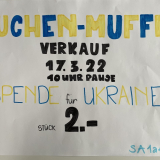 UCHEN-MUFF
VERKAUF
17.3.22
10 UHR PAUSE
SPENDE für UKRAINE
STÜCK 2.-
SA1a